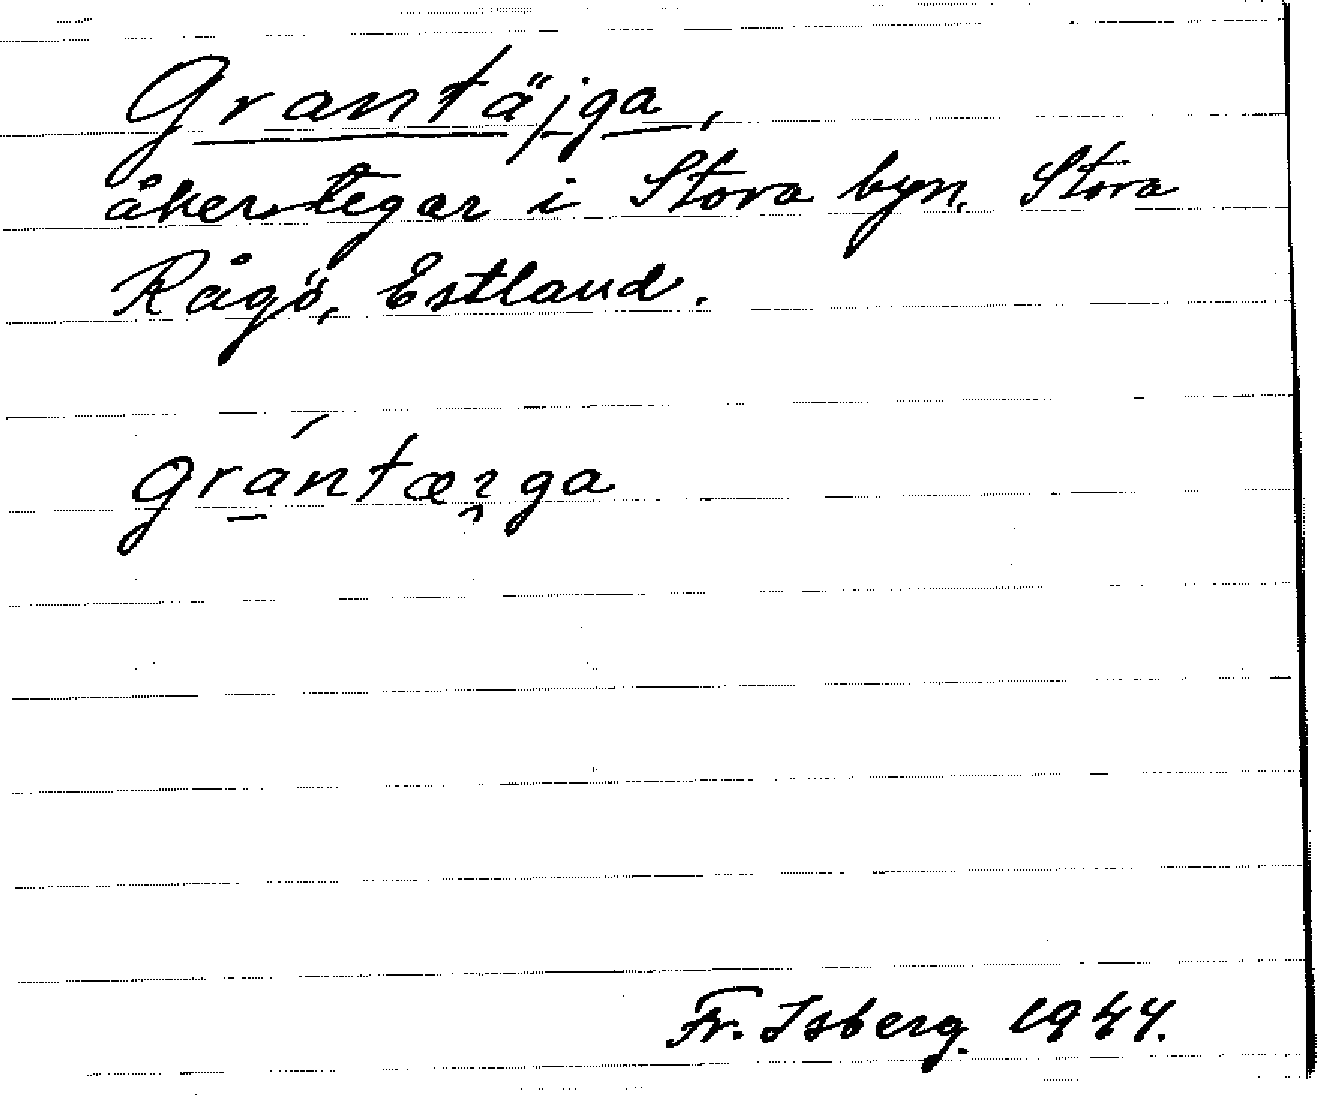 Grantäjga,
åkertegar i Stora byn. Stora
Rågö, Estland.
grántæ̨ga
Fr. Isberg. 1944.